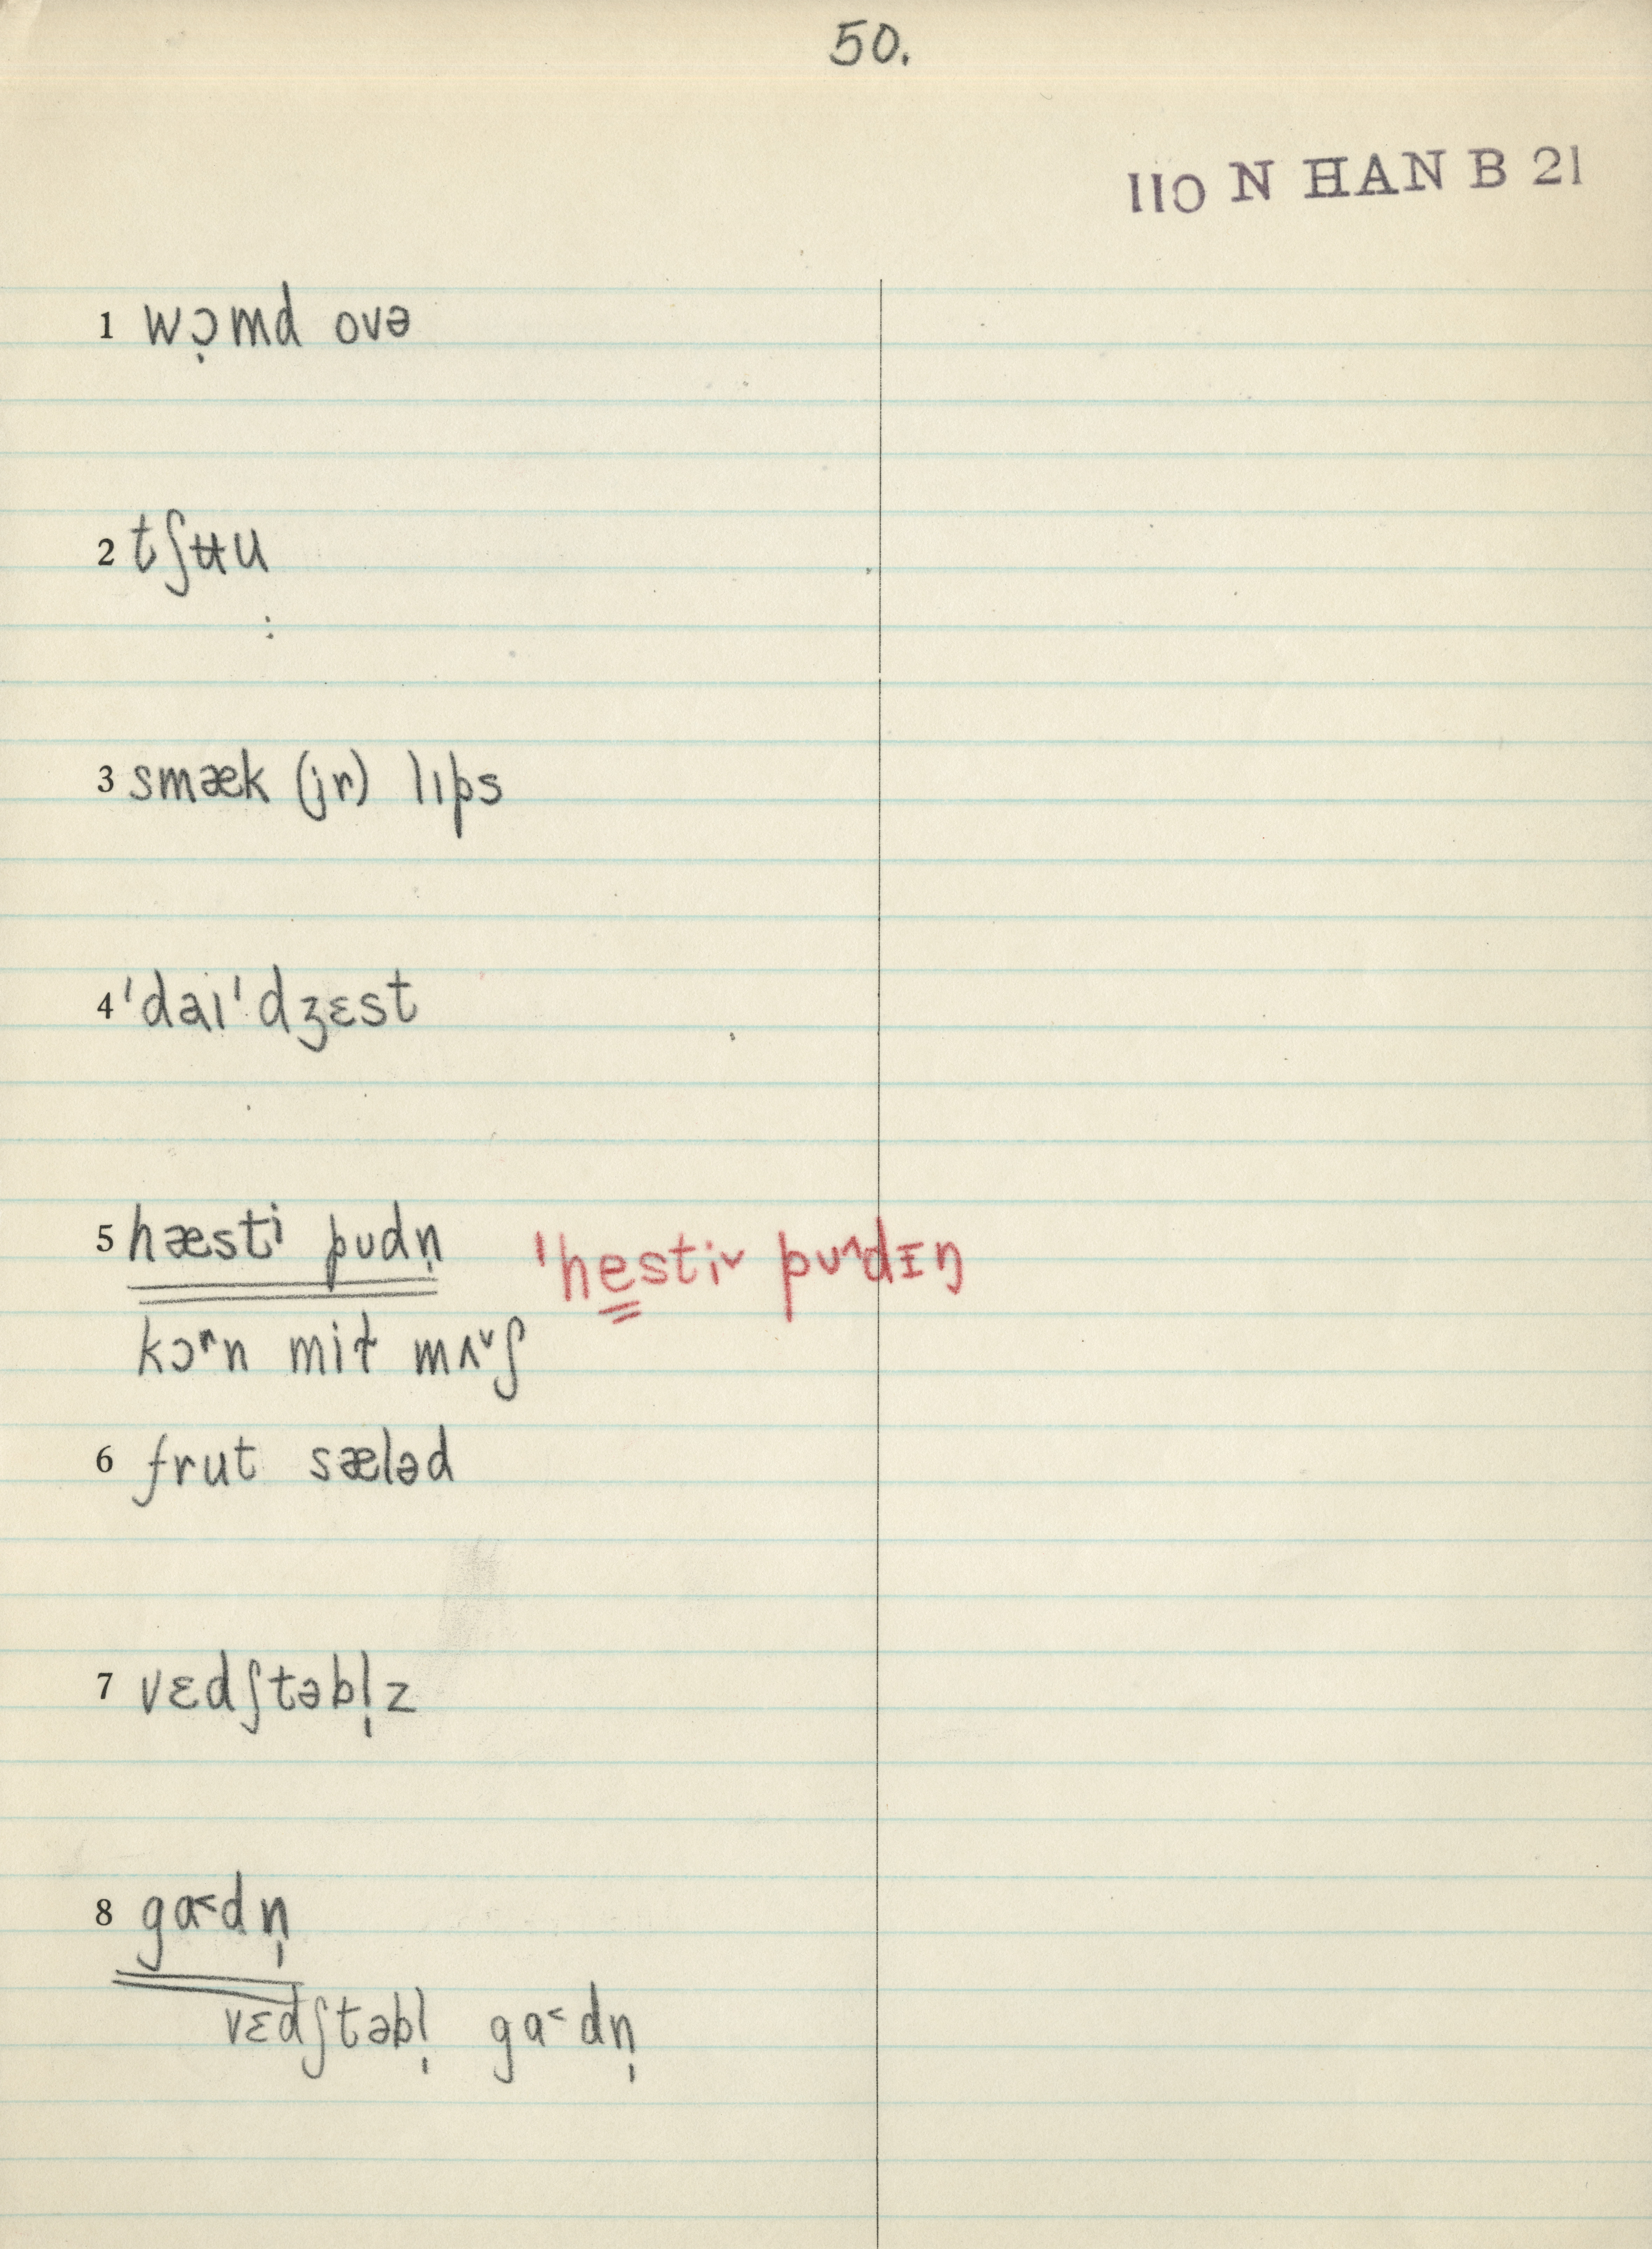 50.
110 N HAN B 21
1 wɔ̣md ovə
2 tʃʉu
3 smæk (jr) lɪps
4 ˈdaɪˈdʒɛst
5 hæsti pudn̩ ˈhe̳stiˇ pʊ^dɪŋ
kɔʳn mit mʌˇʃ
6 frut sæləd
7 vɛdʃtəbl̩z
8 ga˂dn̩
vɛdʃtəbl̩ ga˂dn̩